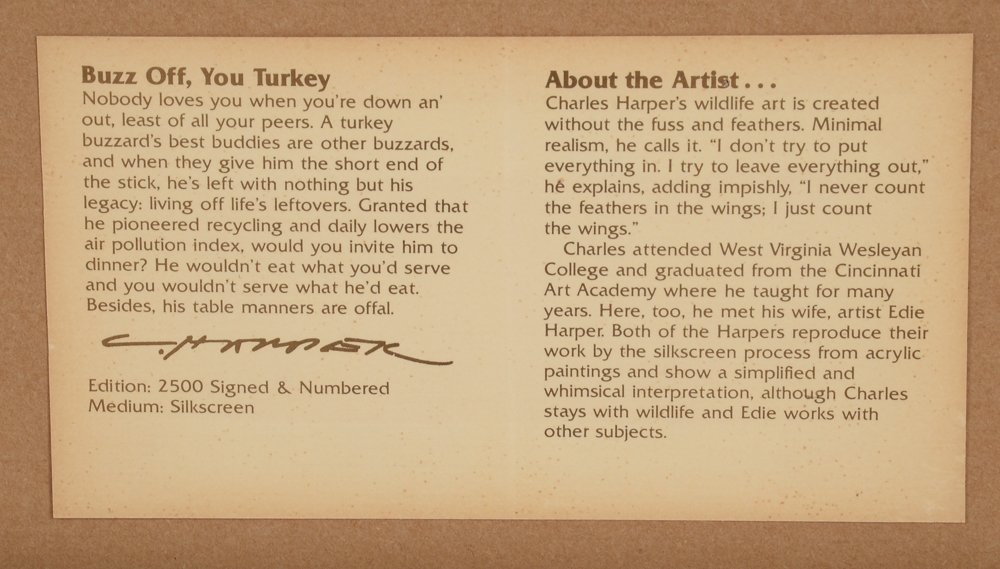 Buzz Off, You Turkey
Nobody loves you when you're down an'
out, least of all your peers. A turkey
buzzard's best buddies are other buzzards,
and when they give him the short end of
the stick, he's left with nothing but his
legacy: living off life's leftovers. Granted that
he pioneered recycling and daily lowers the
air pollution index, would you invite him to
dinner? He wouldn't eat what you'd serve
and you wouldn't serve what he'd eat.
Besides, his table manners are offal.
C. HARPER
Edition: 2500 Signed & Numbered
Medium: Silkscreen
About the Artist...
Charles Harper's wildlife art is created
without the fuss and feathers. Minimal
realism, he calls it. "I don't try to put
everything in. I try to leave everything out,"
he explains, adding impishly, "I never count
the feathers in the wings; I just count
the wings."
Charles attended West Virginia Wesleyan
College and graduated from the Cincinnati
Art Academy where he taught for many
years. Here, too, he met his wife, artist Edie
Harper. Both of the Harpers reproduce their
work by the silkscreen process from acrylic
paintings and show a simplified and
whimsical interpretation, although Charles
stays with wildlife and Edie works with
other subjects.